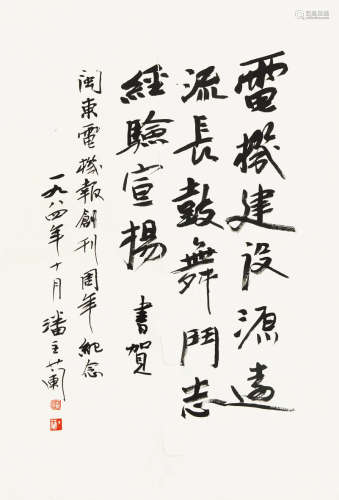 電機建设源遠
流長鼓舞鬥志
經驗宣揚 書賀
闽東電機報創刊周年紀念
一九八四年十月潘主蘭